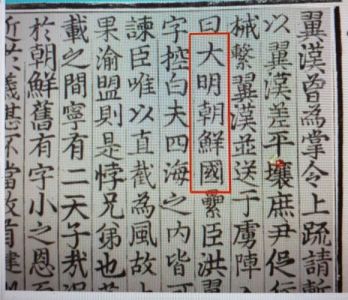 翼漢曾為掌令上疏請斬
以翼漢差平壤庶尹促行
械繫翼漢並送于虜陣
曰大明朝鮮國纍臣洪翼
字控白夫四海之內皆可
諫臣唯以直截為風故上
果渝盟則是悖兄弟也
載之間寧有二天子哉
於朝鮮舊有字小之恩而
近於義甚不當故首建